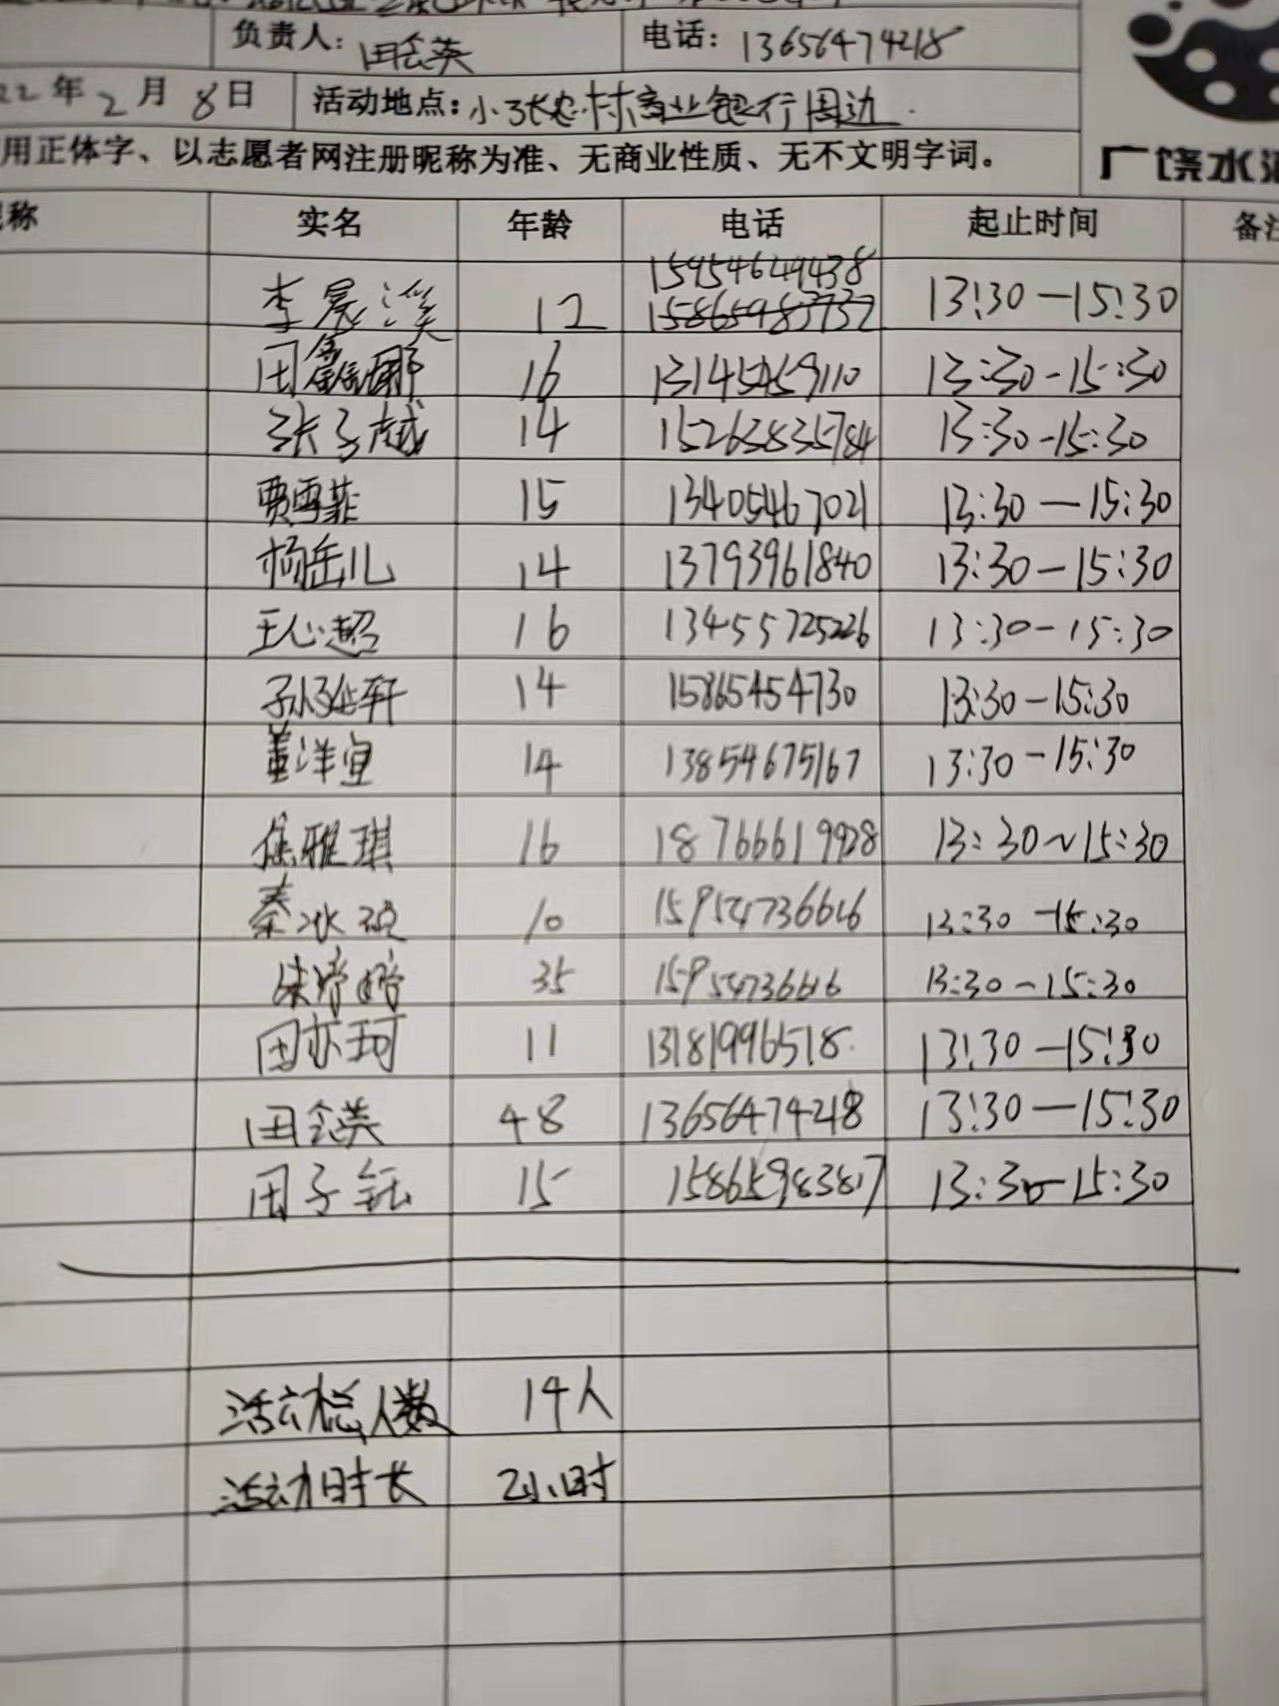 负责人: 田会英 电话: 13656474218
22年2月8日 活动地点: 小张农村商业银行周边.
用正体字、以志愿者网注册昵称为准、无商业性质、无不文明字词。
广饶水滴
昵称 实名 年龄 电话 起止时间 备注
15954649438
李晨溪 12 15865983737 13:30—15:30
田鑫娜 16 13145459110 13:30-15:30
张子越 14 15263835784 13:30-15:30
贾雪菲 15 13405467021 13:30—15:30
杨岳儿 14 13793961840 13:30—15:30
王心超 16 13455725226 13:30-15:30
孙延轩 14 15865454730 13:30-15:30
董洋宜 14 13854675167 13:30-15:30
焦雅琪 16 18766619928 13:30~15:30
秦冰 10 15954736616 13:30-15:30
35 15954736616 13:30-15:30
田亦珂 11 13181996518 13:30—15:30
田会英 48 13656474218 13:30—15:30
田子钰 15 15865983817 13:30-15:30
活动总人数 14人
活动时长 2小时